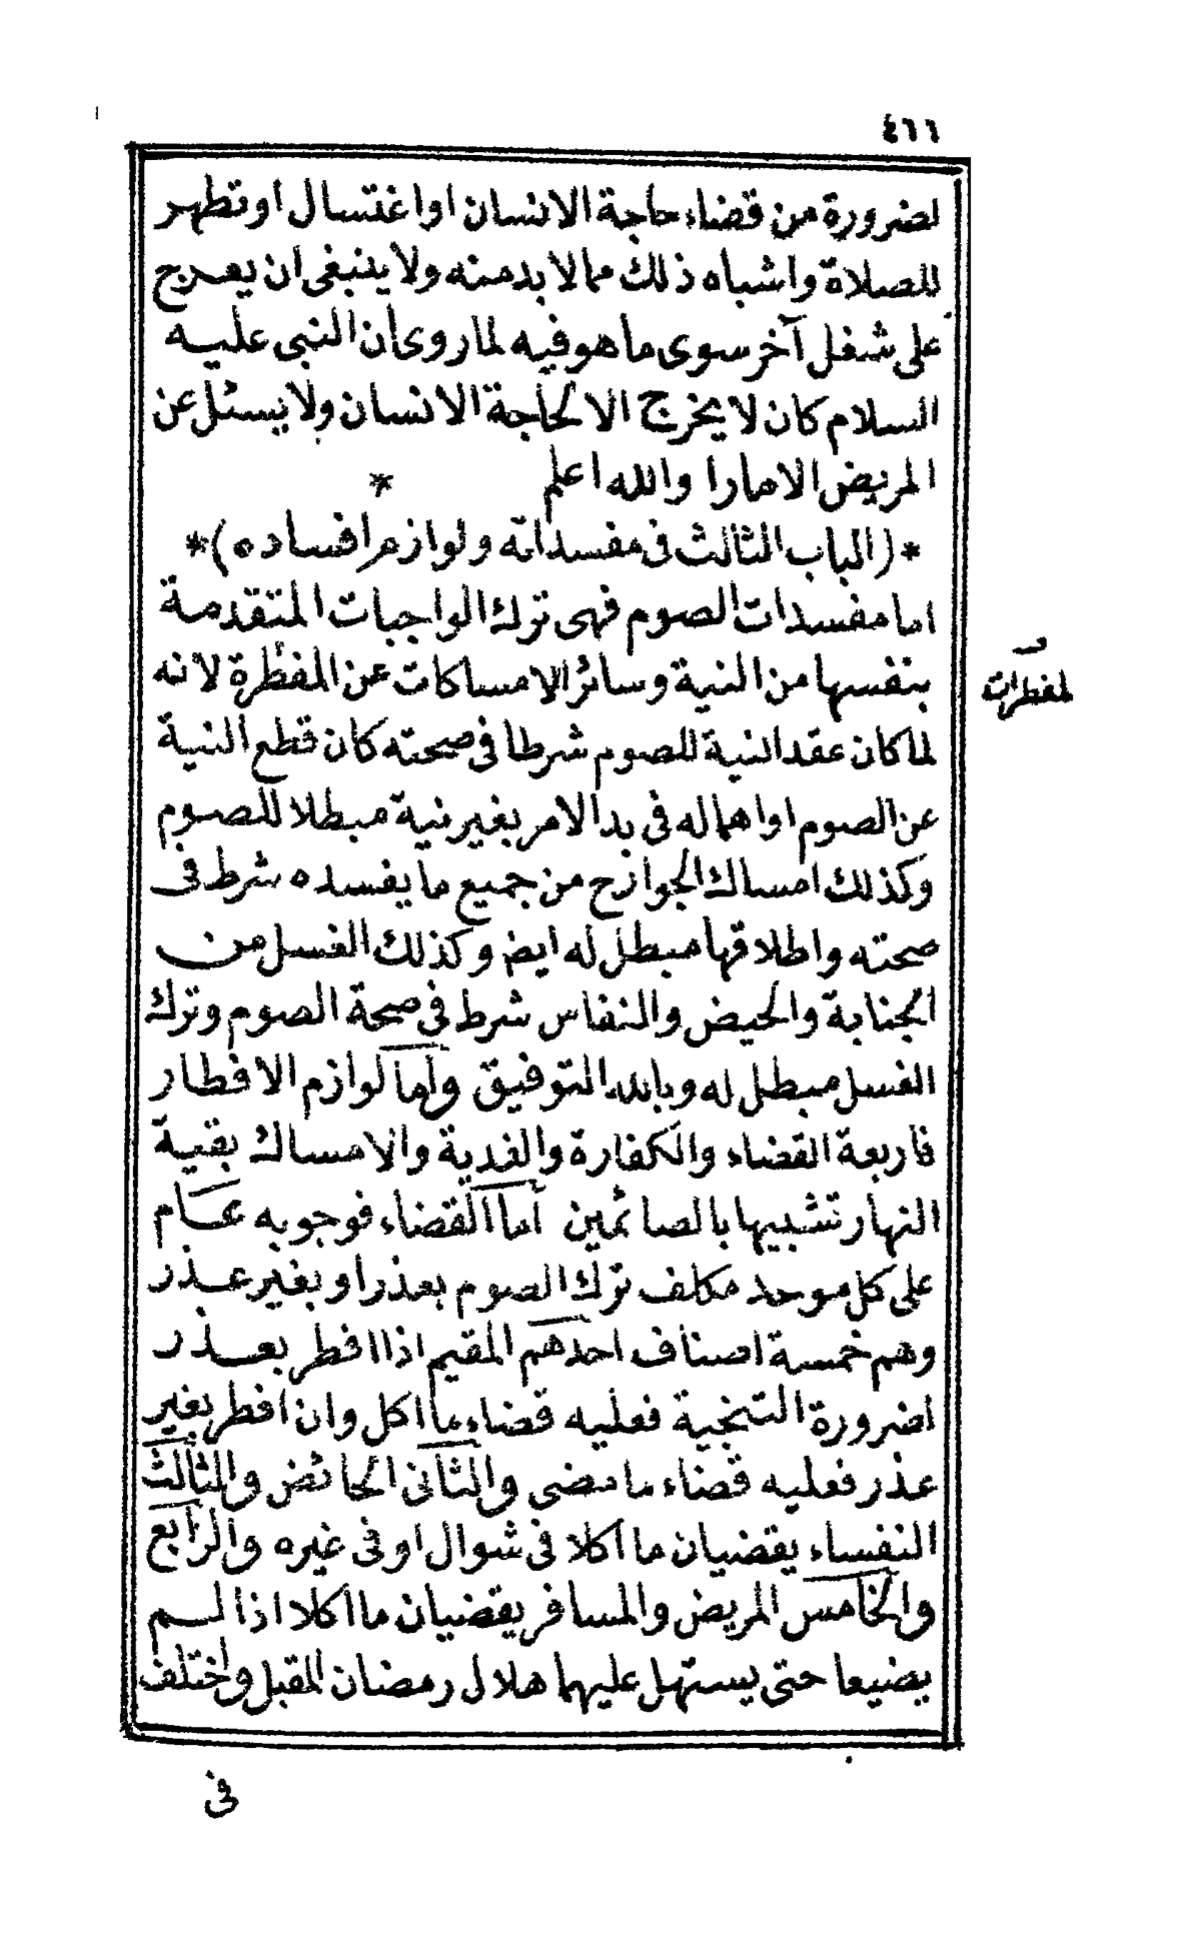 ٤٦٦
لضرورة من قضاء حاجة الانسان او اغتسال او تطهر
للصلاة واشباه ذلك مما لا بد منه ولا ينبغى ان يعرج
على شغل آخر سوى ما هو فيه لما روى ان النبى عليه
السلام كان لا يخرج الا لحاجة الانسان ولا يسئل عن
المريض الا مارا والله اعلم *
*(الباب الثالث فى مفسداته ولوازم افساده)*
اما مفسدات الصوم فهى ترك الواجبات المتقدمة
بنفسها من النية وسائر الامساكات عن المفطرة لانه
لمفطرات
لما كان عقد النية للصوم شرطا فى صحته كان قطع النية
عن الصوم او اهماله فى بدا الامر بغير نية مبطلا للصوم
وكذلك امساك الجوارح من جميع ما يفسده شرط فى
صحته واطلاقها مبطل له ايض وكذلك الغسل من
الجنابة والحيض والنفاس شرط فى صحة الصوم وترك
الغسل مبطل له وبالله التوفيق وأما لوازم الافطار
فأربعة القضاء والكفارة والفدية والامساك بقية
النهار تشبيها بالصائمين أما القضاء فوجوبه عام
على كل موحد مكلف ترك الصوم بعذر او بغير عذر
وهم خمسة اصناف احدهم المقيم اذا افطر بعذر
لضرورة التنجية فعليه قضاء ما اكل وان افطر بغير
عذر فعليه قضاء ما مضى والثانى الحائض والثالث
النفساء يقضيان ما اكلا فى شوال او فى غيره والرابع
والخامس المريض والمسافر يقضيان ما اكلا اذا لم
يضيعا حتى يستهل عليهما هلال رمضان المقبل واختلف
فى